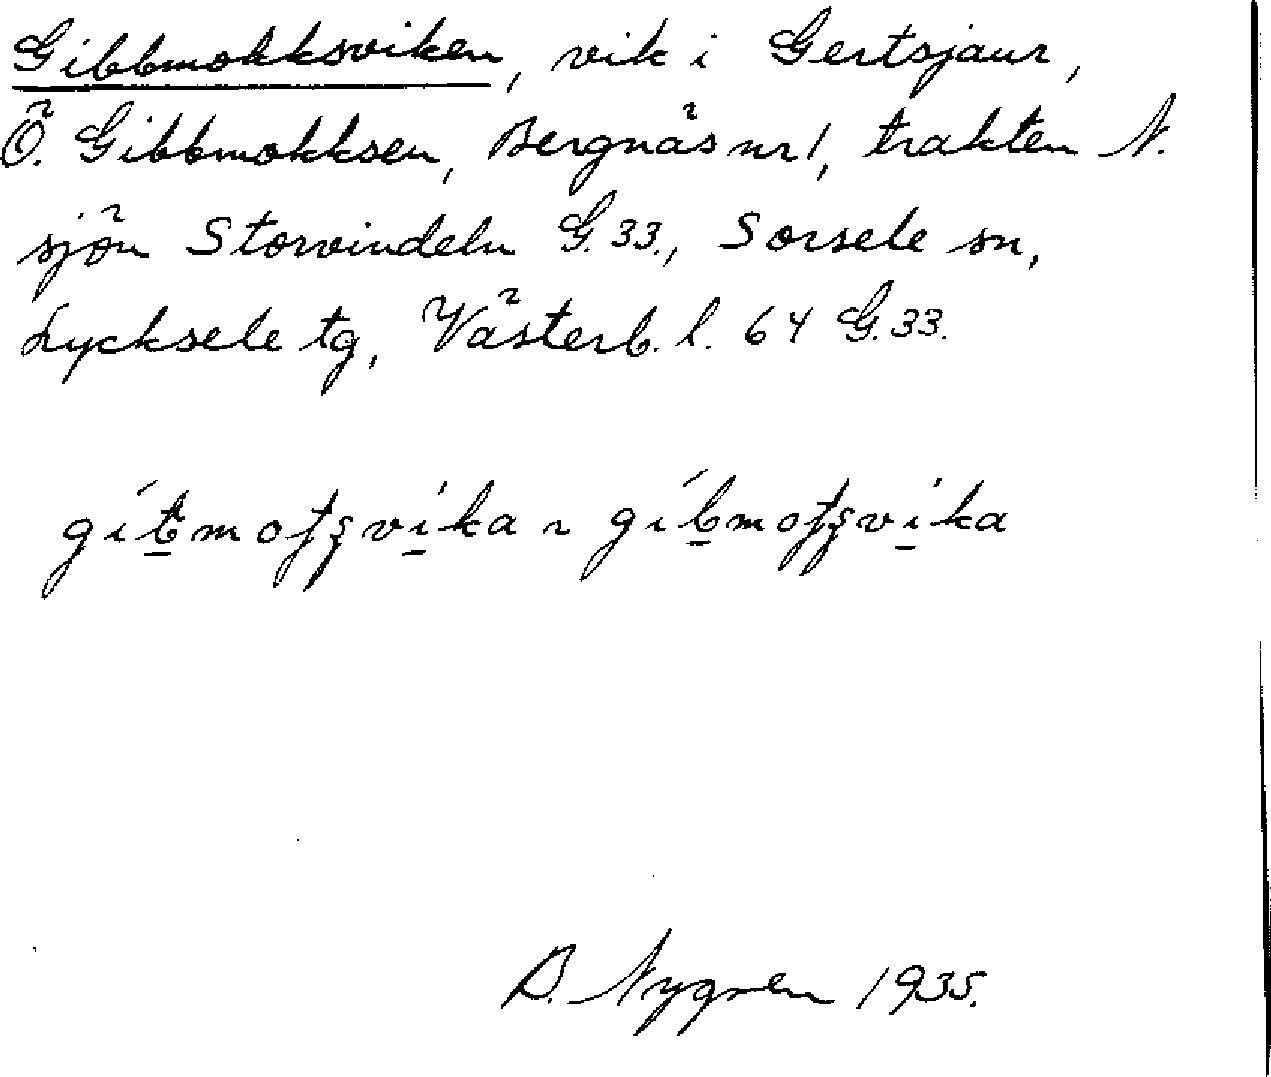 Gibbmokksviken, vik i Gertsjaur,
Ö. Gibbmokksen, Bergnäs nr 1, trakten N.
sjön Storvindeln G.33., Sorsele sn,
Lycksele tg, Västerb. l. 64 G.33.
B. Nygren 1935.